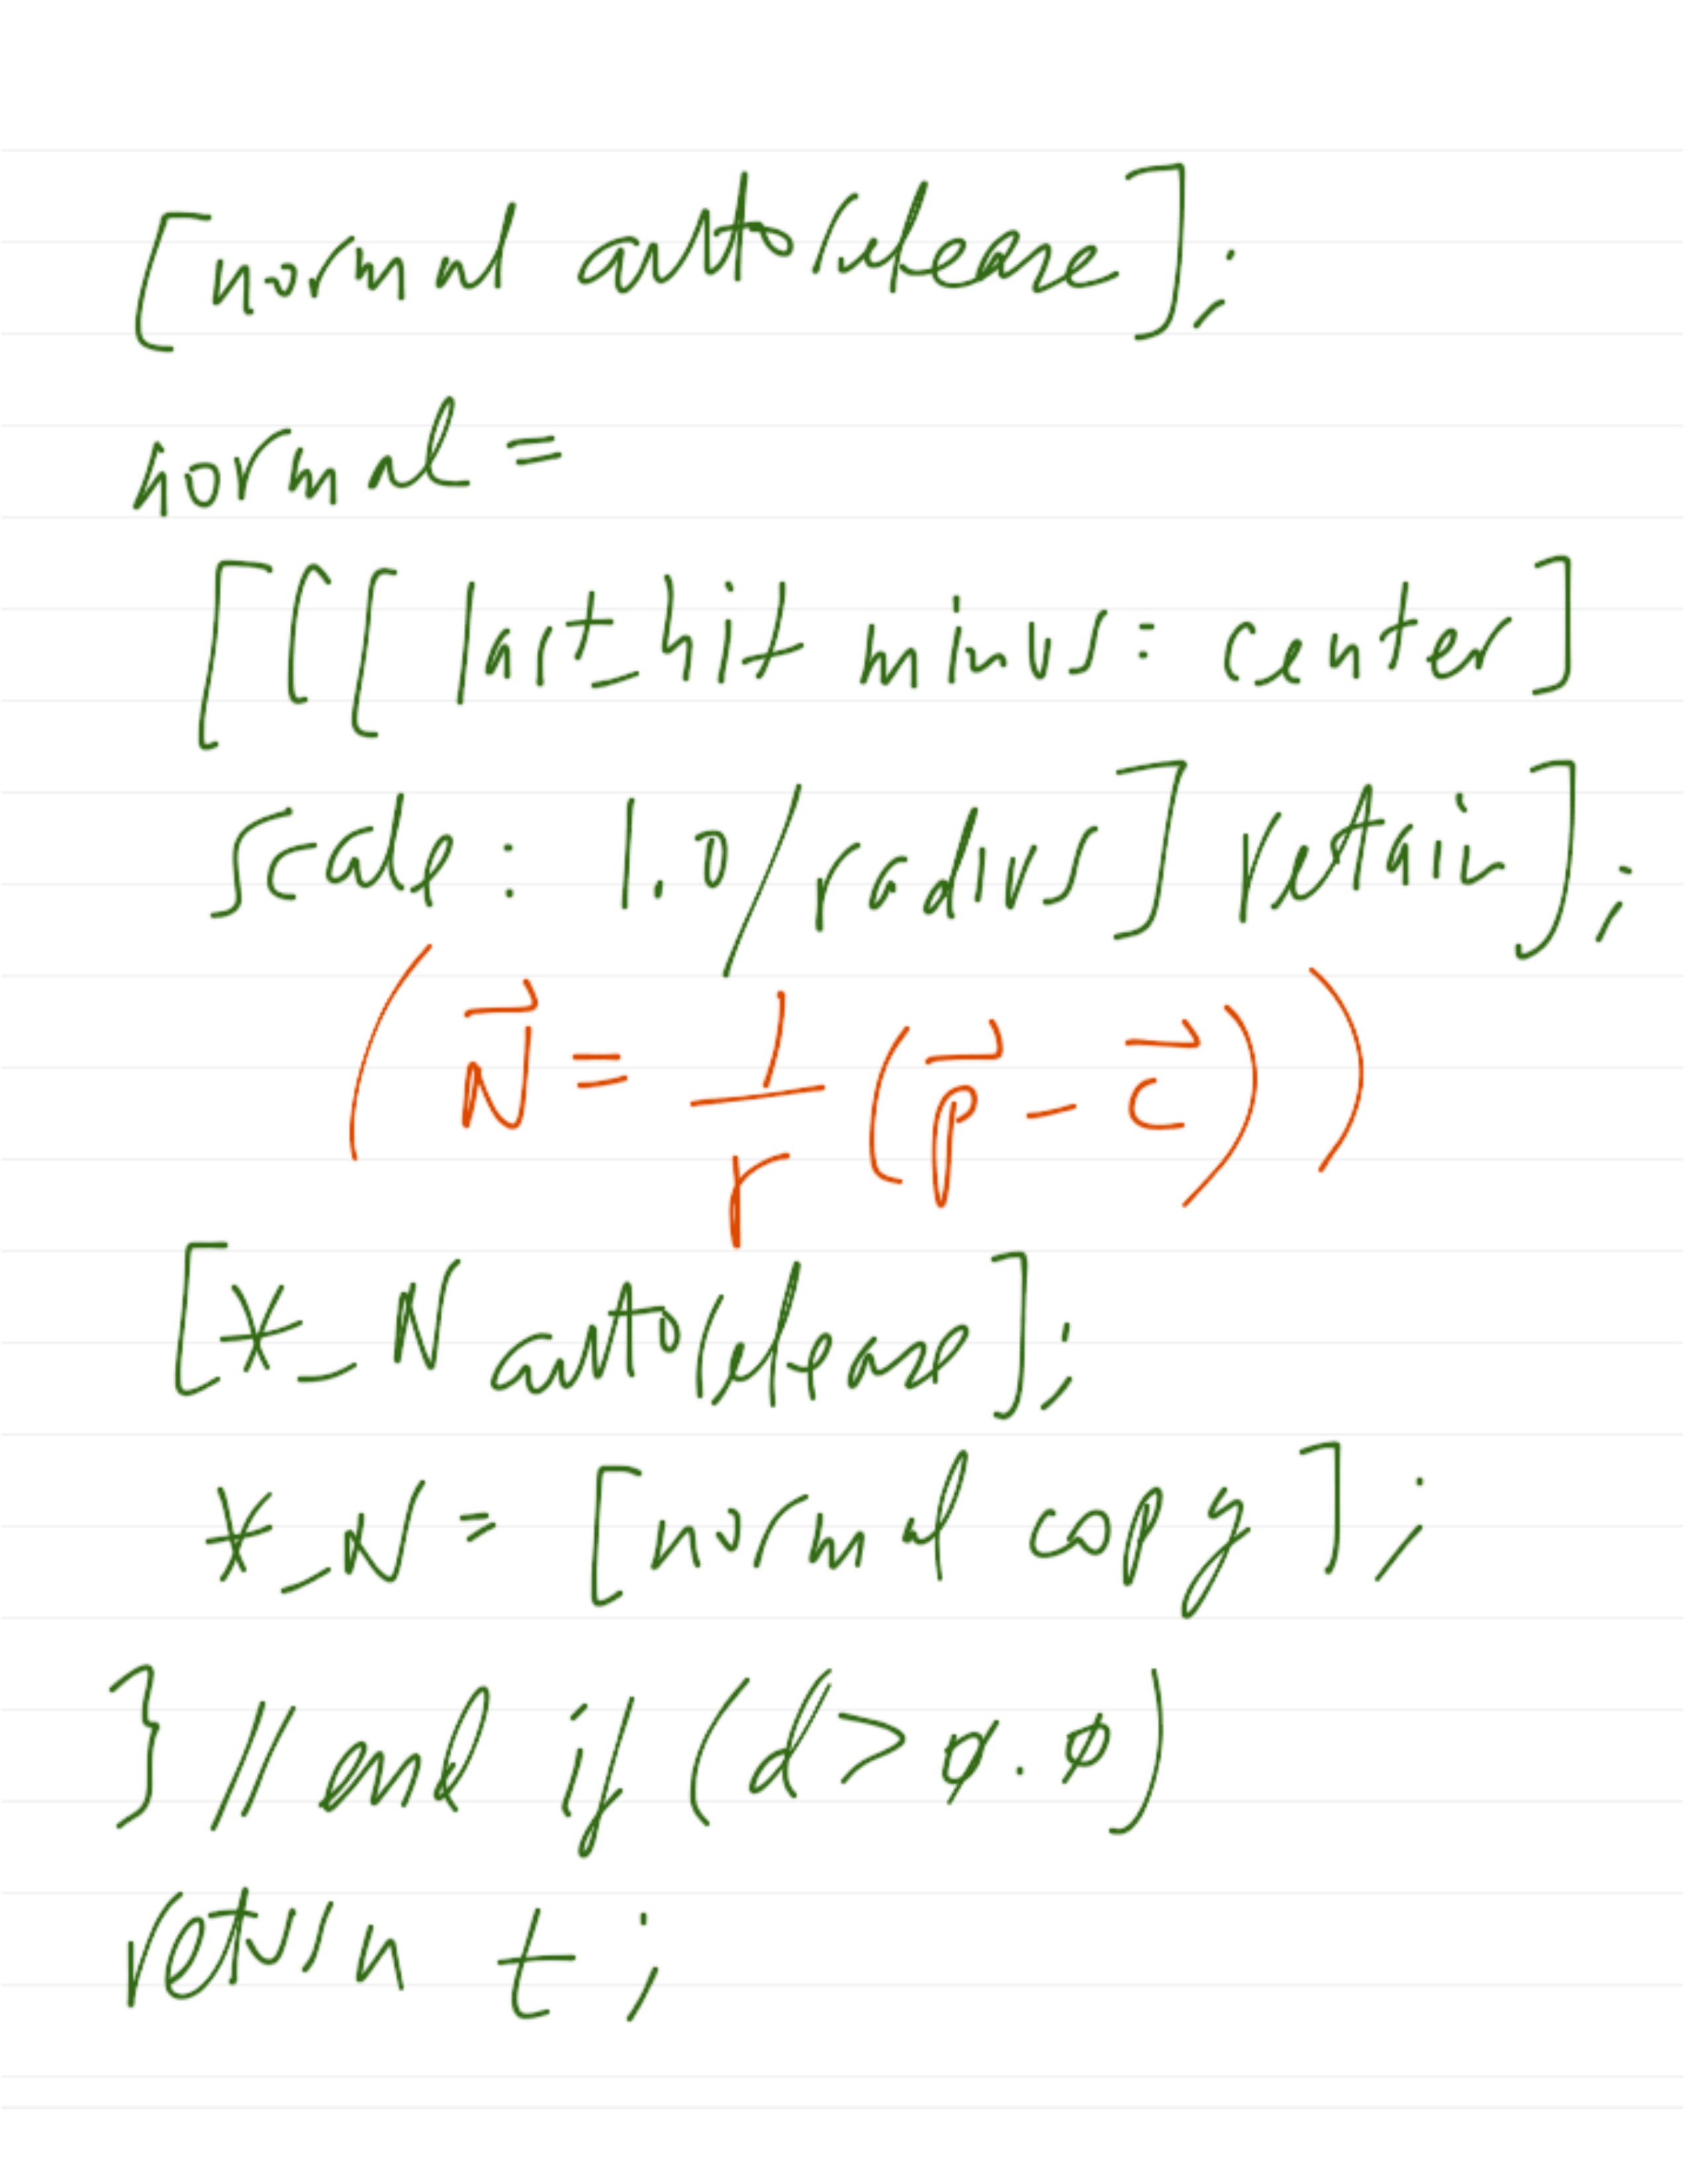 [normal autorelease];
normal =
[[[last_hit minus: center]
scale: 1.0/radius] retain];
(N⃗ = 1/r (p⃗ - c⃗))
[*_N autorelease];
*_N = [normal copy];
} // end if (d > 0.0)
return t;